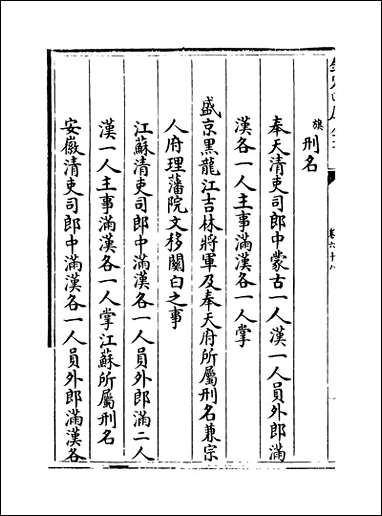 旗
刑名
奉天清吏司郎中蒙古一人漢一人員外郎滿
漢各一人主事滿漢各一人掌
盛京黑龍江吉林將軍及奉天府所屬刑名兼宗
人府理藩院文移關白之事
江蘇清吏司郎中滿漢各一人員外郎滿二人
漢一人主事滿漢各一人掌江蘇所屬刑名
安徽清吏司郎中滿漢各一人員外郎滿漢各
卷六十八